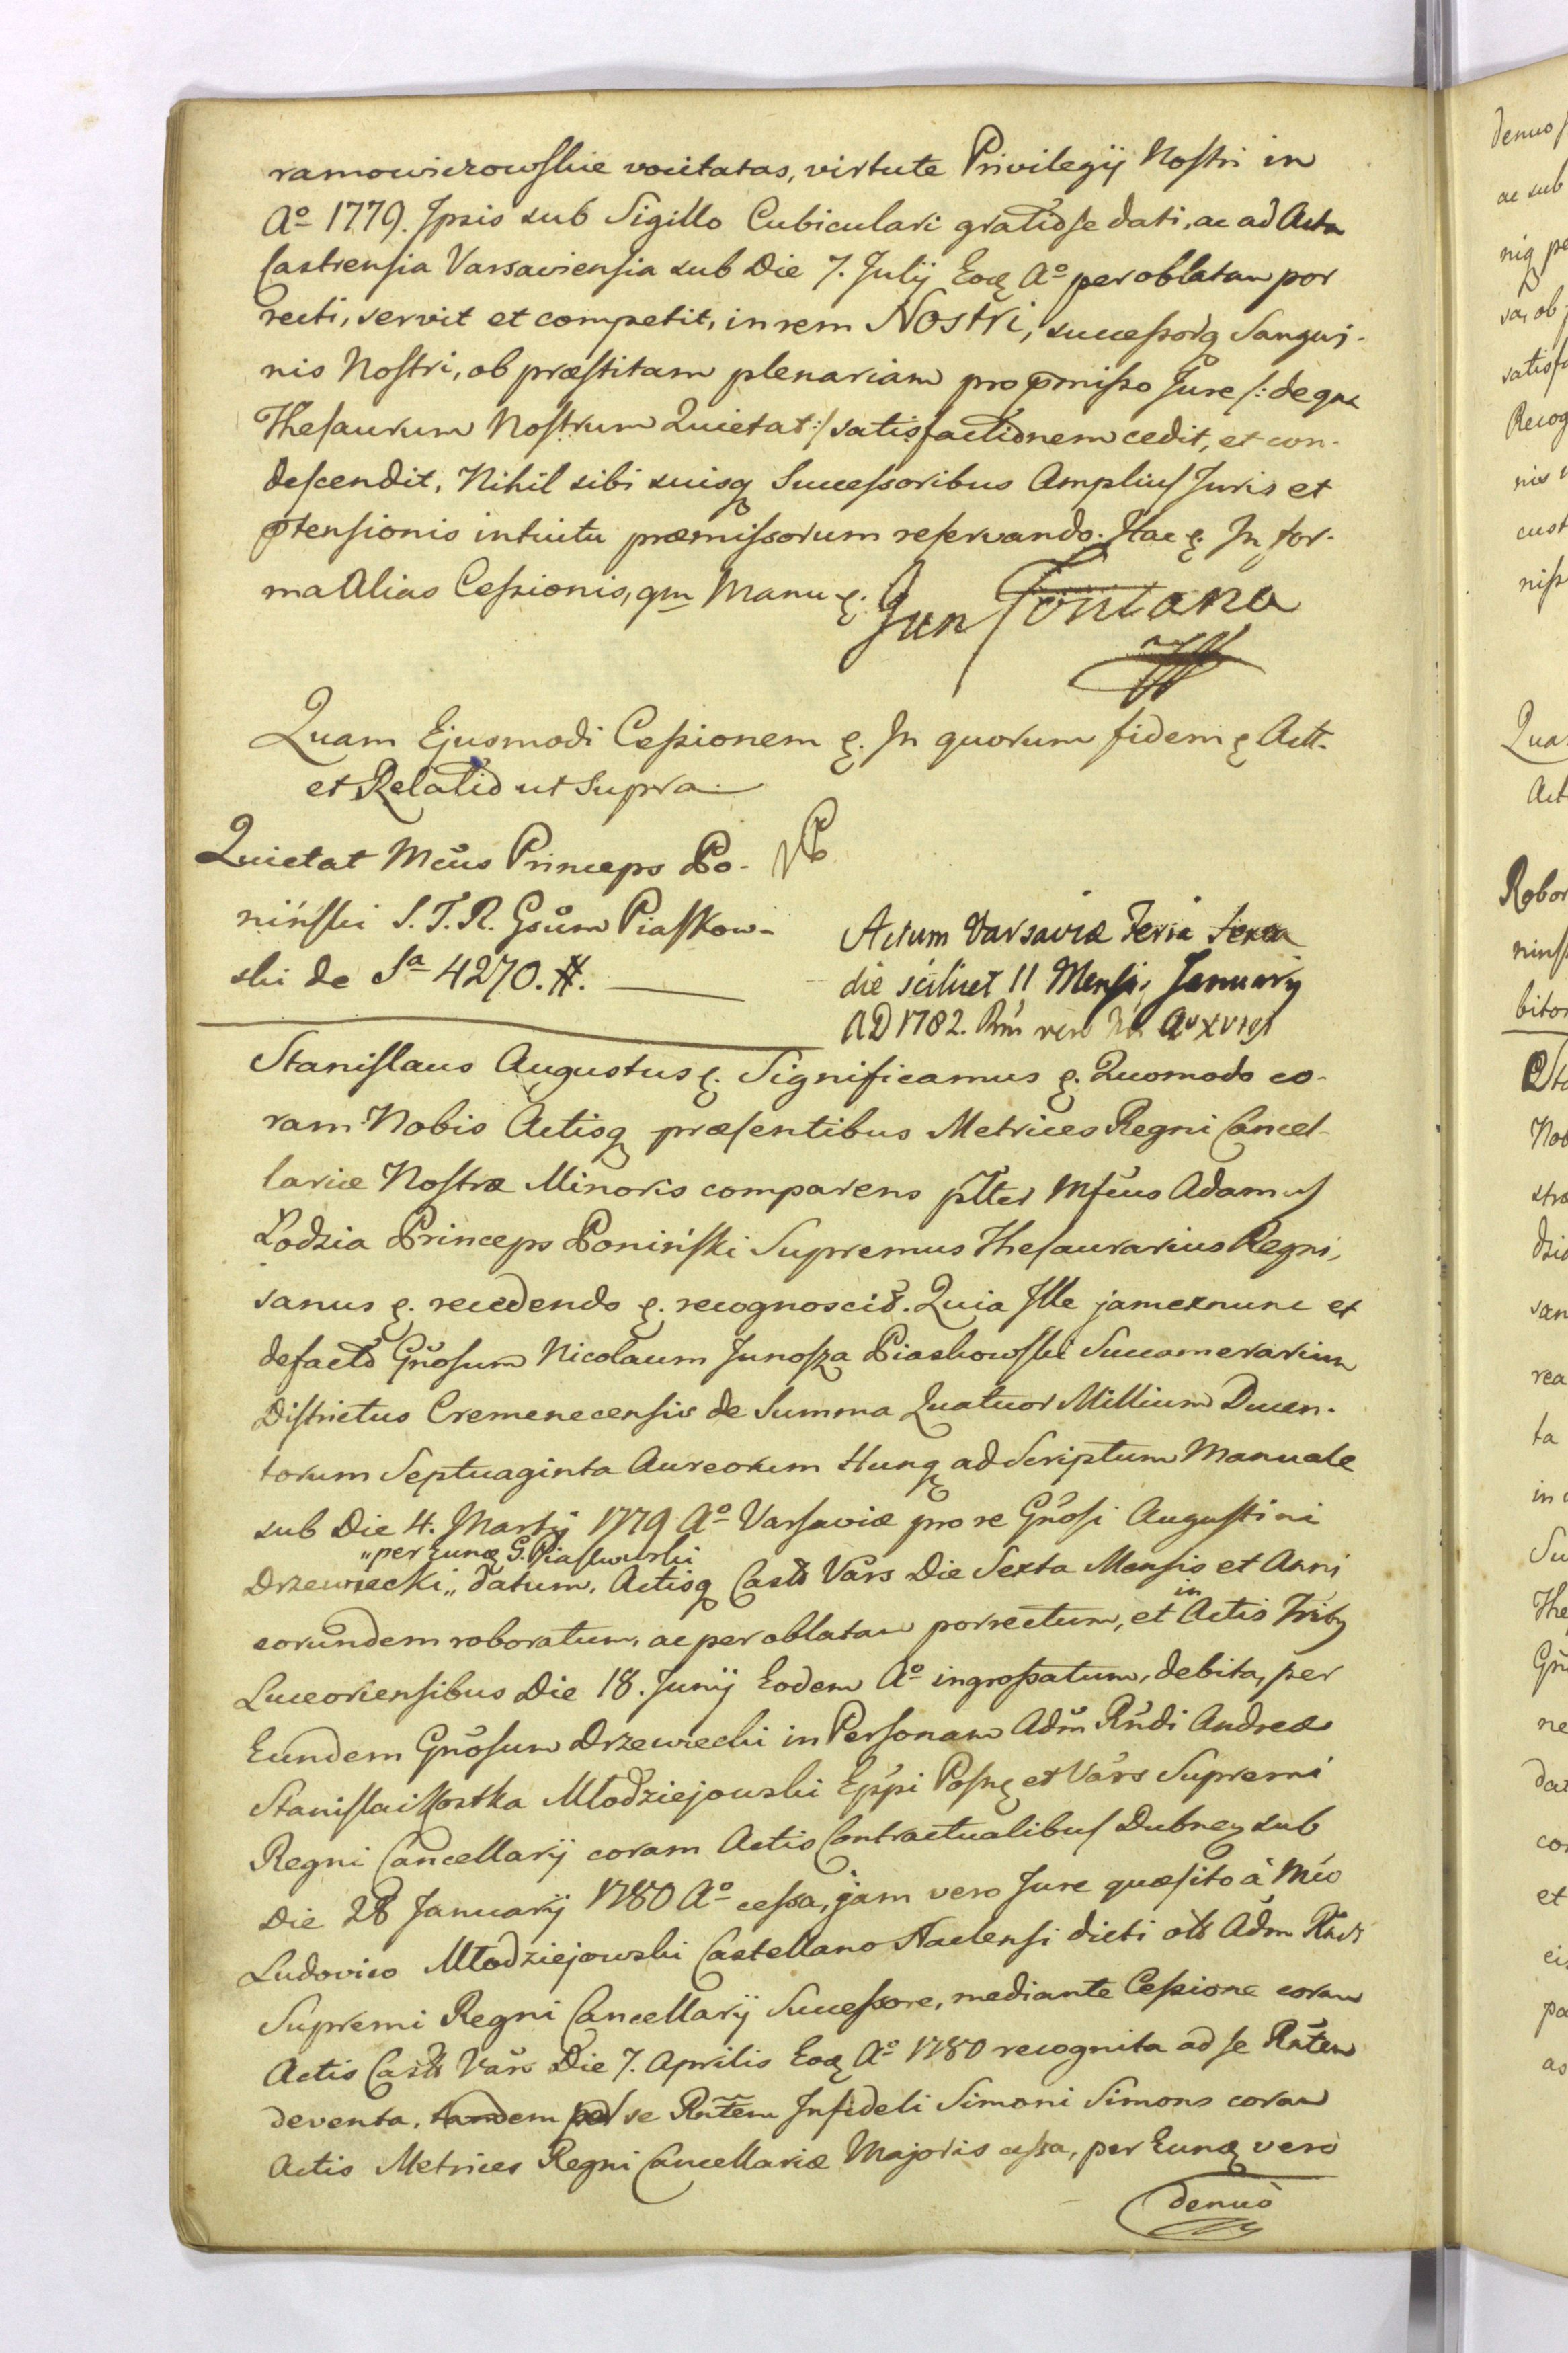 ramowiczowskie vocitatas, virtute Privilegij Nostri in
Aº 1779. Ipsis sub Sigillo Cubiculari gratiose dati, ac ad Acta
Castrensia Varsaviensia sub Die 7. Julij Eoq Aº per oblatam por
recti, servit et competit, in rem Nostri, successorq Sangui-
nis Nostri, ob præstitam plenariam pro pmisso Jure /: de qua
Thesaurum Nostrum Quietat :/ satisfactionem cedit, et con-
descendit, Nihil sibi suisq Successoribus Amplius Juris et
ptensionis intuitu præmissorum reservando. Hac &. In for-
ma Alias Cessionis, qm Manu &. Jan Fontana
Quam Ejusmodi Cessionem &. In quorum fidem & Act-
et Relatio ut supra
Quietat Mcus Princeps Po-
niński S. T. R. Gsum Piaskow-
ski de Sa 4270. #.
Actum Varsaviæ Feria Sexta
die scilicet 11 Mensis Januarij
AD 1782. Rni vero Nri Aº XVIII
Stanislaus Augustus &. Significamus &. Quomodo co-
ram Nobis Actisq præsentibus Metrices Regni Cancel-
lariæ Nostræ Minoris comparens plter Mfcus Adamus
Lodzia Princeps Poniński Supremus Thesaurarius Regni,
sanus &. recedendo &. recognoscit. Quia Ille jam ex nunc et
de facto Gnosum Nicolaum Junosza Piaskowski Succamerarium
Districtus Cremenecensis de Summa Quatuor Millium Ducen-
torum Septuaginta Aureorum Hunq ad Scriptum Manuale
sub Die 4. Martij 1779 Aº Varsaviæ pro re Gnosi Augustini
„per Eunq G. Piaskowski
Drzewiecki „ datum, Actisq Casts Vars Die Sexta Mensis et Anni
eorundem roboratum, ac per oblatam porrectum, et in Actis Tribq
Luceoriensibus Die 18. Junij Eodem Aº ingrossatum, debita, per
Eundem Gnosum Drzewiecki in Personam Adm Rndi Andreæ
Stanislai Kostka Młodziejowski Eppi Posnq et Vars Supremi
Regni Cancellarij coram Actis Contractualibus Dubneq sub
Die 28 Januarij 1780 Aº cessa, jam vero Jure quæsito à Mco
Ludovico Młodziejowski Castellano Naclensi dicti ols Adm Rndi
Supremi Regni Cancellarij Successore, mediante Cessione coram
Actis Casts Vars Die 7. Aprilis Eoq Aº 1780 recognita ad se Rntem
deventa, tandem per se Rntem Infideli Simoni Simons coram
Actis Metrices Regni Cancellariæ Majoris cessa, per Eunq vero
denuò